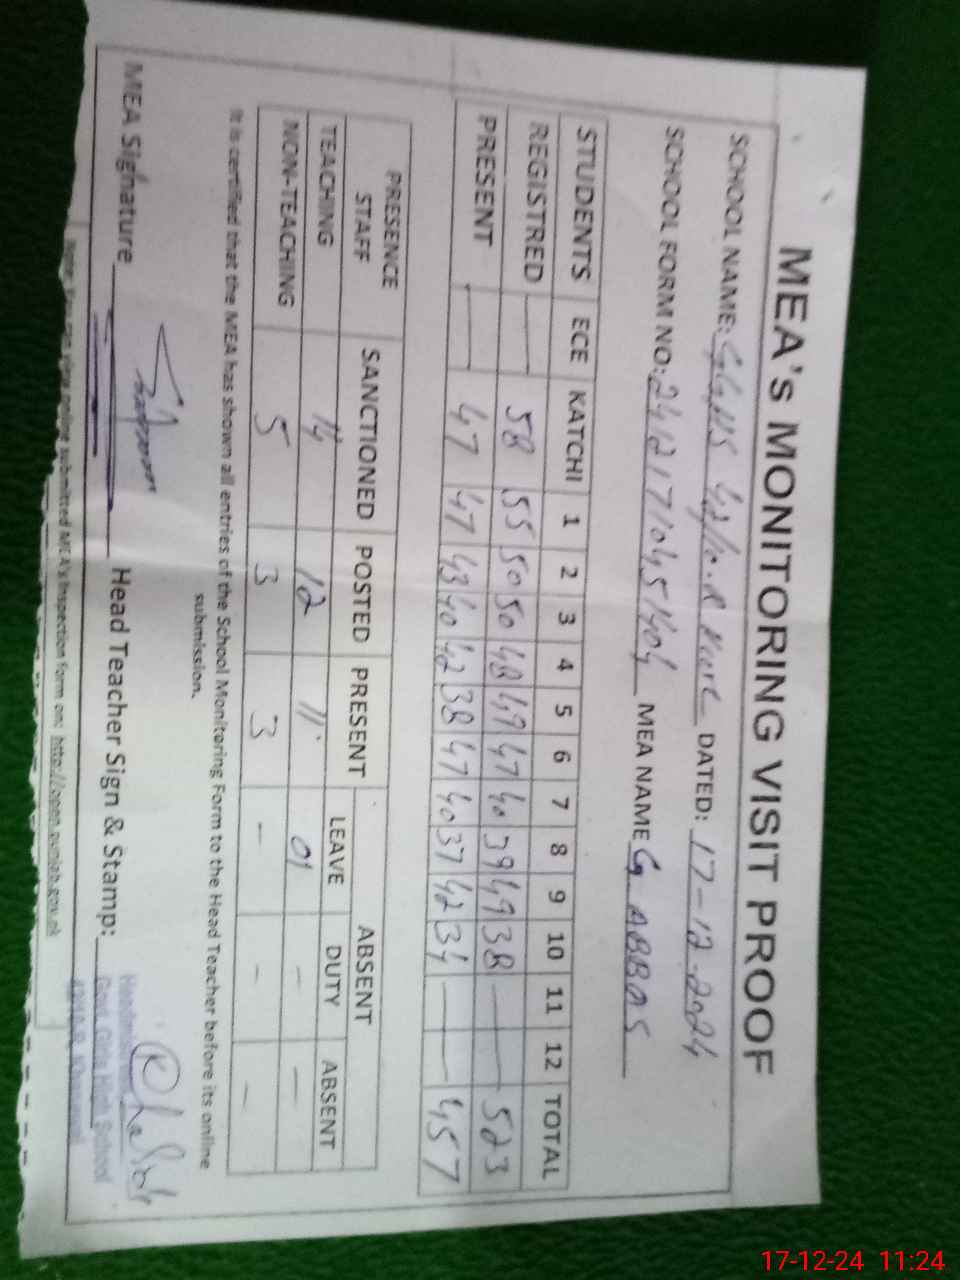 MEA's MONITORING VISIT PROOF
SCHOOL NAME: GGHS DATED: 17-12-2024
SCHOOL FORM NO: 24121710451404 MEA NAME G ABBAS
STUDENTS ECE KATCHI 1 2 3 4 5 6 7 8 9 10 11 12 TOTAL
REGISTRED — 58 55 50 50 48 49 47 40 39 49 38 — — 523
PRESENT — 47 47 43 40 42 38 47 40 37 42 34 — — 457
PRESENCE STAFF SANCTIONED POSTED PRESENT ABSENT
LEAVE DUTY ABSENT
TEACHING 14 12 11 01 — —
NON-TEACHING 5 3 3 — — —
It is certified that the MEA has shown all entries of the School Monitoring Form to the Head Teacher before its online
submission.
MEA Signature Head Teacher Sign & Stamp:
Headmistress
Govt. Girls High School
view online submitted MEA's Inspection form on: http://open.punjab.gov.pk
17-12-24 11:24